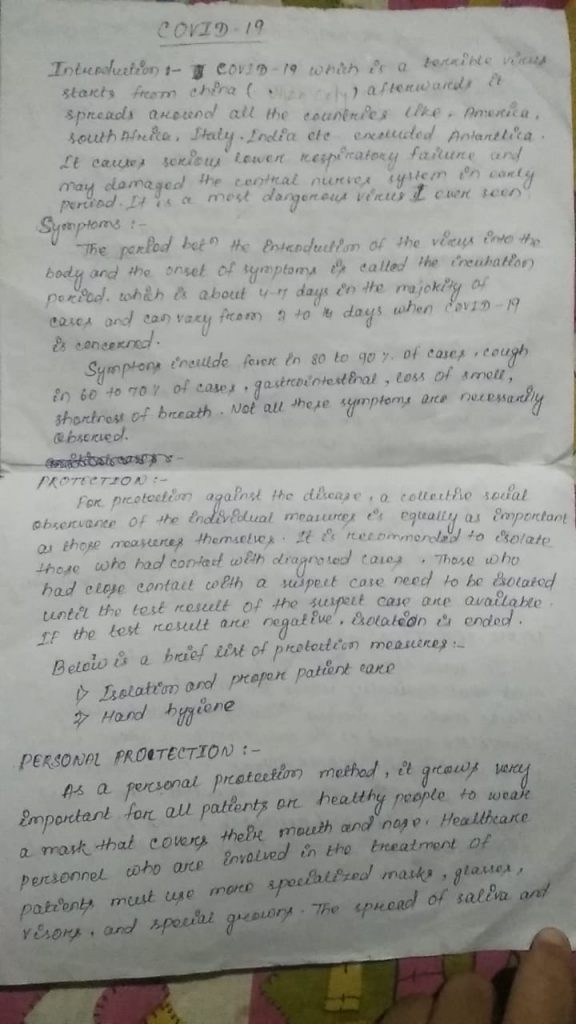 COVID-19
Introduction :- COVID-19 which is a terrible virus
starts from china ( ) afterwards it
spreads around all the countries like, America,
south Africa, Italy, India etc excluded Antarctica.
It causes serious lower respiratory failure and
may damaged the central nerves system in early
period. It is a most dangerous virus I ever seen
Symptoms :-
The period betn the introduction of the virus into the
body and the onset of symptoms is called the incubation
period. which is about 4-7 days in the majority of
cases and can vary from 2 to 14 days when COVID-19
is concerned.
Symptoms include fever in 80 to 90% of cases, cough
in 60 to 70% of cases, gastrointestinal, loss of smell,
shortness of breath. Not all these symptoms are necessarily
observed.
PROTECTION :-
For protection against the disease, a collective social
observance of the individual measures is equally as important
as those measures themselves. It is recommended to isolate
those who had contact with diagnosed cases. Those who
had close contact with a suspect case need to be isolated
until the test result of the suspect case are available.
If the test result are negative, isolation is ended.
Below is a brief list of protection measures :-
1> Isolation and proper patient care
2> Hand hygiene
PERSONAL PROTECTION :-
As a personal protection method, it grows very
important for all patients or healthy people to wear
a mask that covers their mouth and nose. Healthcare
personnel who are involved in the treatment of
patients must use more specialized masks, glasses,
visors, and special gowns. The spread of saliva and